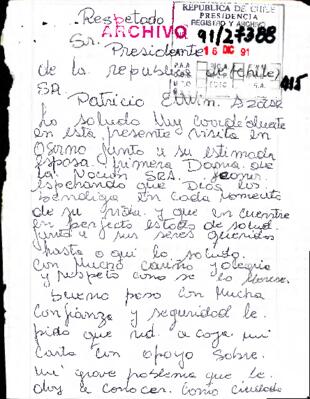 Respetado
REPUBLICA DE CHILE
PRESIDENCIA
REGISTRO Y ARCHIVO
ARCHIVO
91/27388
Sr. Presidente
16 DIC 91
de la republica de (chile)
SR.
Patricio
lo saludo Muy cordialmente
en esta presente visita en
Osorno junto a su estimada
esposa primera Dama de
la Nación SRA. Leonor.
esperando que Dios los
bendiga en cada momento
de su vida y que en cuentre
en perfecto estado de salud.
junto a sus seres queridos
hasta a qui lo saludo.
con Mucho cariño y alegria
y respeto como se lo Merese.
bueno paso con Mucha
confianza y seguridad le
pido que ud. a coja mi
carta con apoyo sobre
mi grave problema que le
doy a conocer. como ciudada